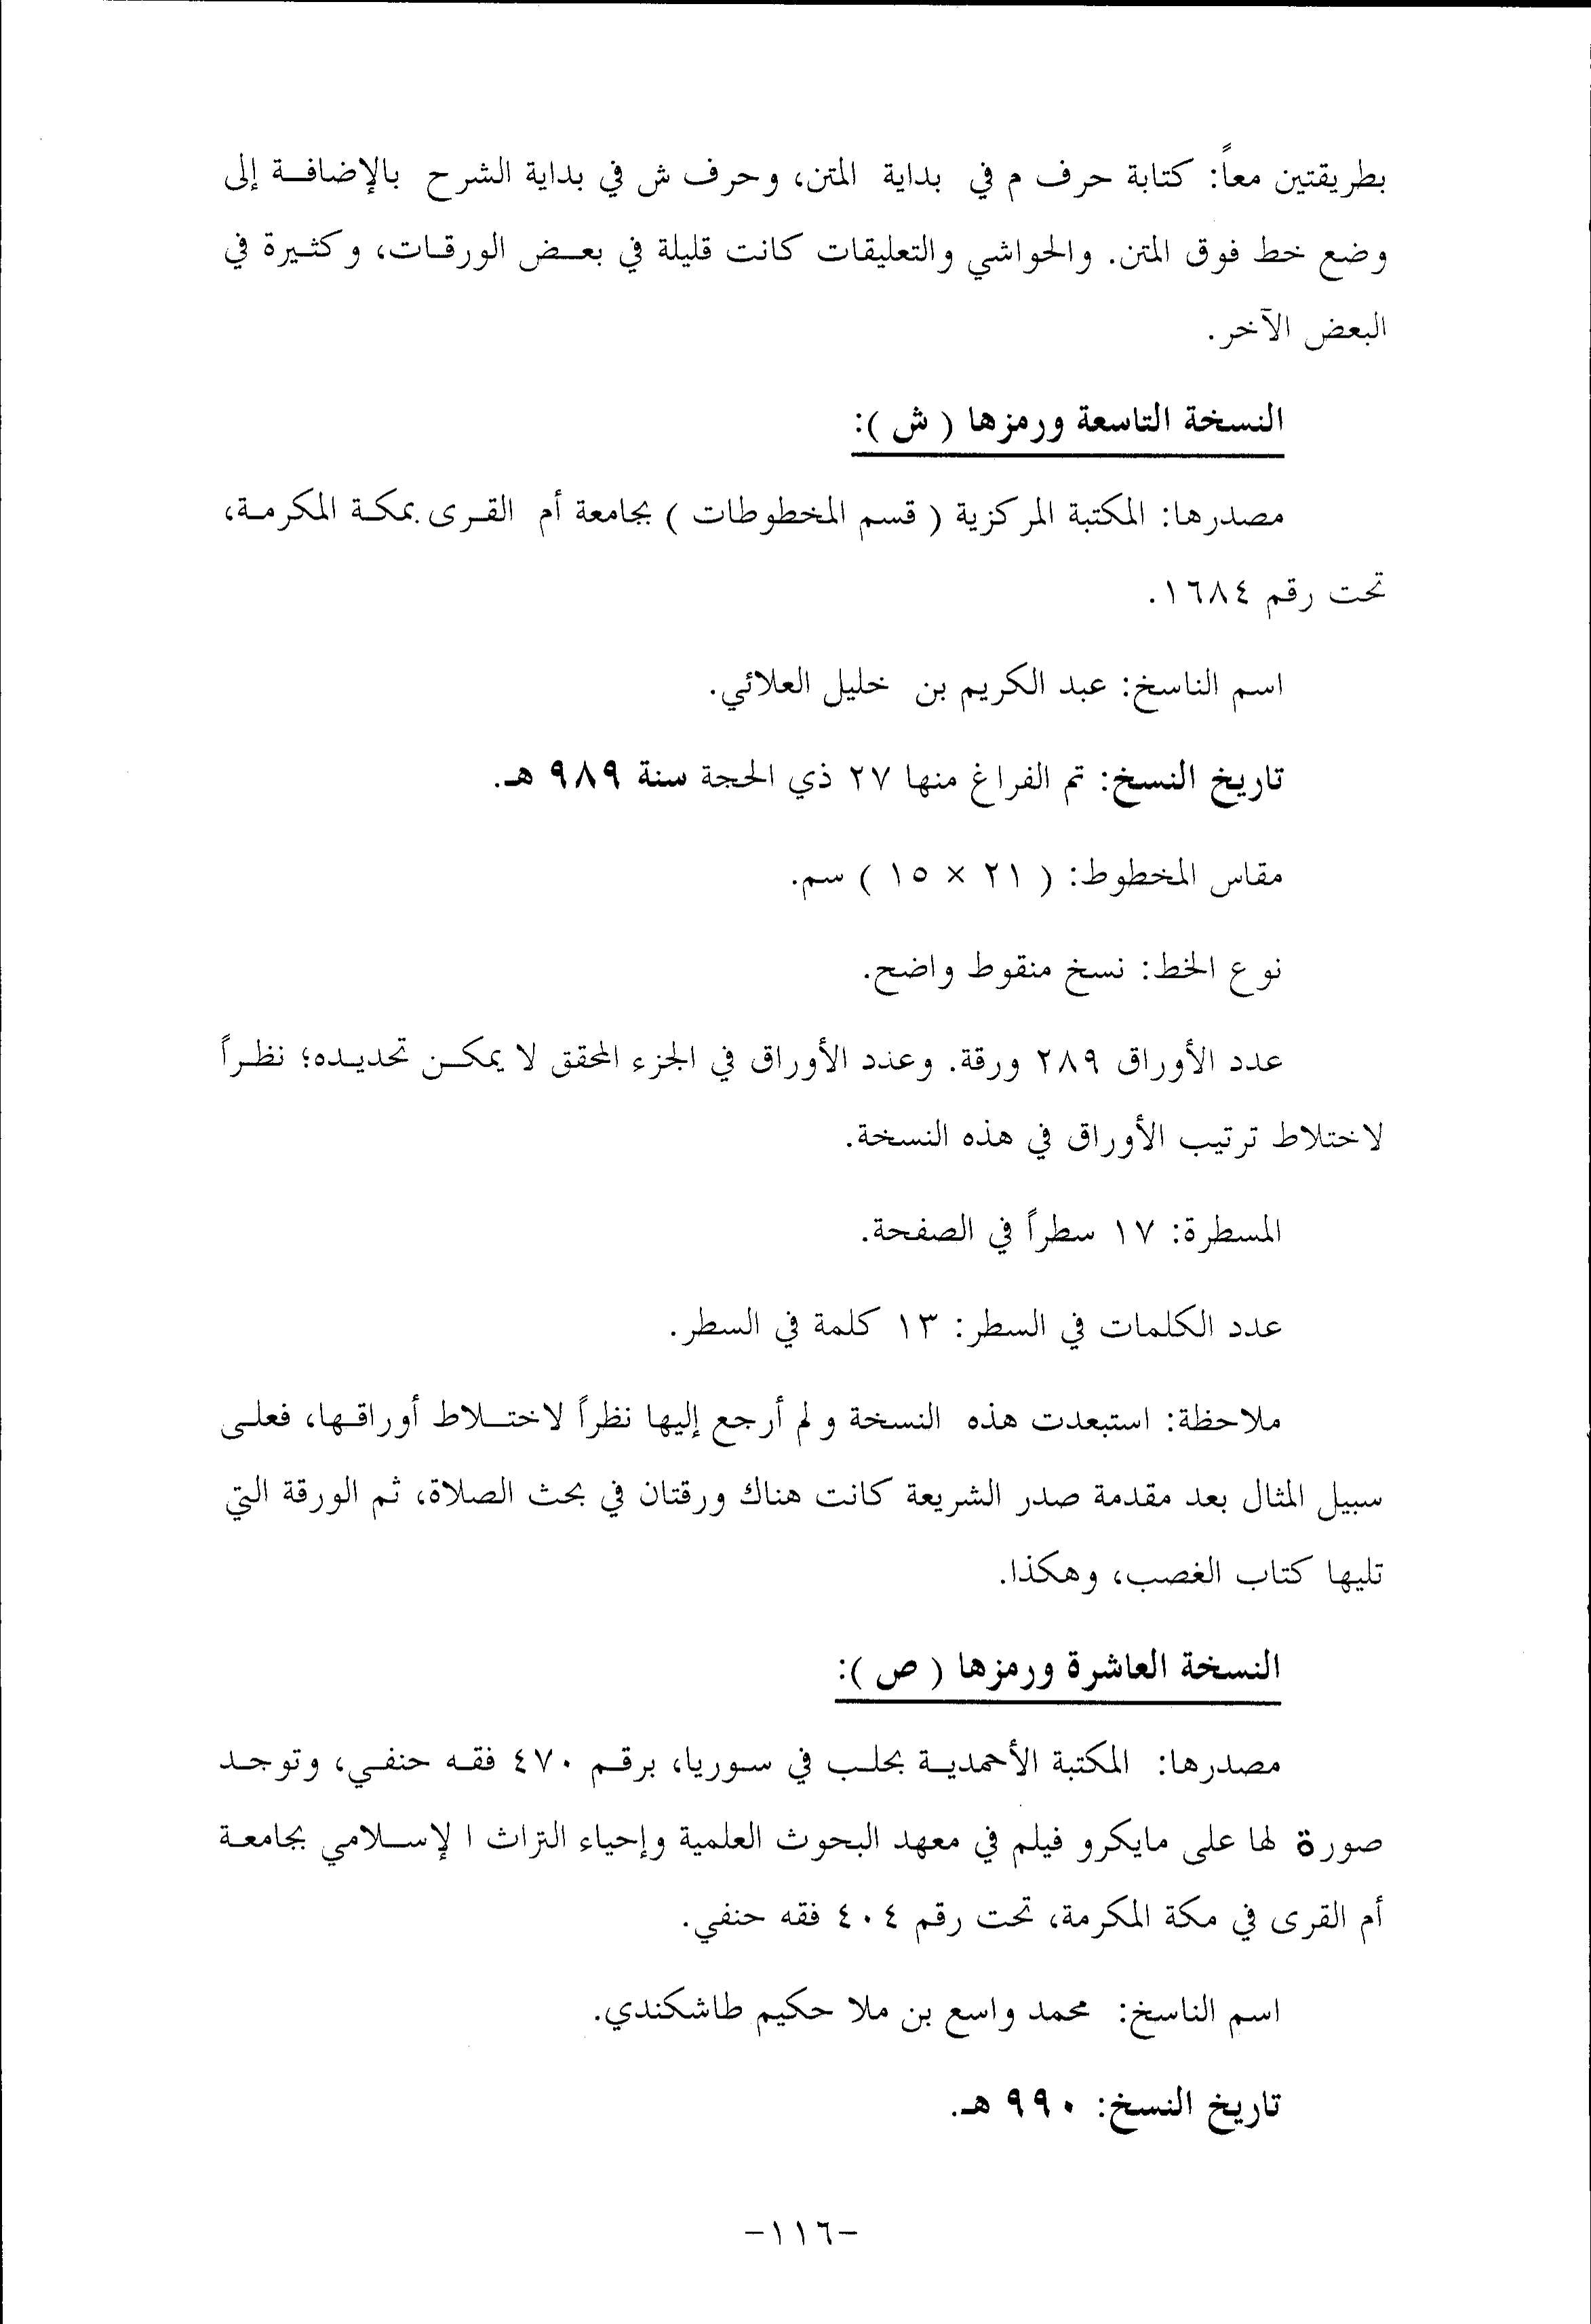 بطريقتين معاً: كتابة حرف م في بداية المتن، وحرف ش في بداية الشرح بالإضافة إلى
وضع خط فوق المتن. والحواشي والتعليقات كانت قليلة في بعض الورقات، وكثيرة في
البعض الآخر.
النسخة التاسعة ورمزها ( ش ):
مصدرها: المكتبة المركزية ( قسم المخطوطات ) بجامعة أم القرى بمكة المكرمة،
تحت رقم ١٦٨٤.
اسم الناسخ: عبد الكريم بن خليل العلائي.
تاريخ النسخ: تم الفراغ منها ٢٧ ذي الحجة سنة ٩٨٩ هـ.
مقاس المخطوط: ( ٢١ × ١٥ ) سم.
نوع الخط: نسخ منقوط واضح.
عدد الأوراق ٢٨٩ ورقة. وعدد الأوراق في الجزء المحقق لا يمكن تحديده؛ نظراً
لاختلاط ترتيب الأوراق في هذه النسخة.
المسطرة: ١٧ سطراً في الصفحة.
عدد الكلمات في السطر: ١٣ كلمة في السطر.
ملاحظة: استبعدت هذه النسخة ولم أرجع إليها نظراً لاختلاط أوراقها، فعلى
سبيل المثال بعد مقدمة صدر الشريعة كانت هناك ورقتان في بحث الصلاة، ثم الورقة التي
تليها كتاب الغصب، وهكذا.
النسخة العاشرة ورمزها ( ص ):
مصدرها: المكتبة الأحمدية بحلب في سوريا، برقم ٤٧٠ فقه حنفي، وتوجد
صورة لها على مايكرو فيلم في معهد البحوث العلمية وإحياء التراث الإسلامي بجامعة
أم القرى في مكة المكرمة، تحت رقم ٤٠٤ فقه حنفي.
اسم الناسخ: محمد واسع بن ملا حكيم طاشكندي.
تاريخ النسخ: ٩٩٠ هـ.
-١١٦-